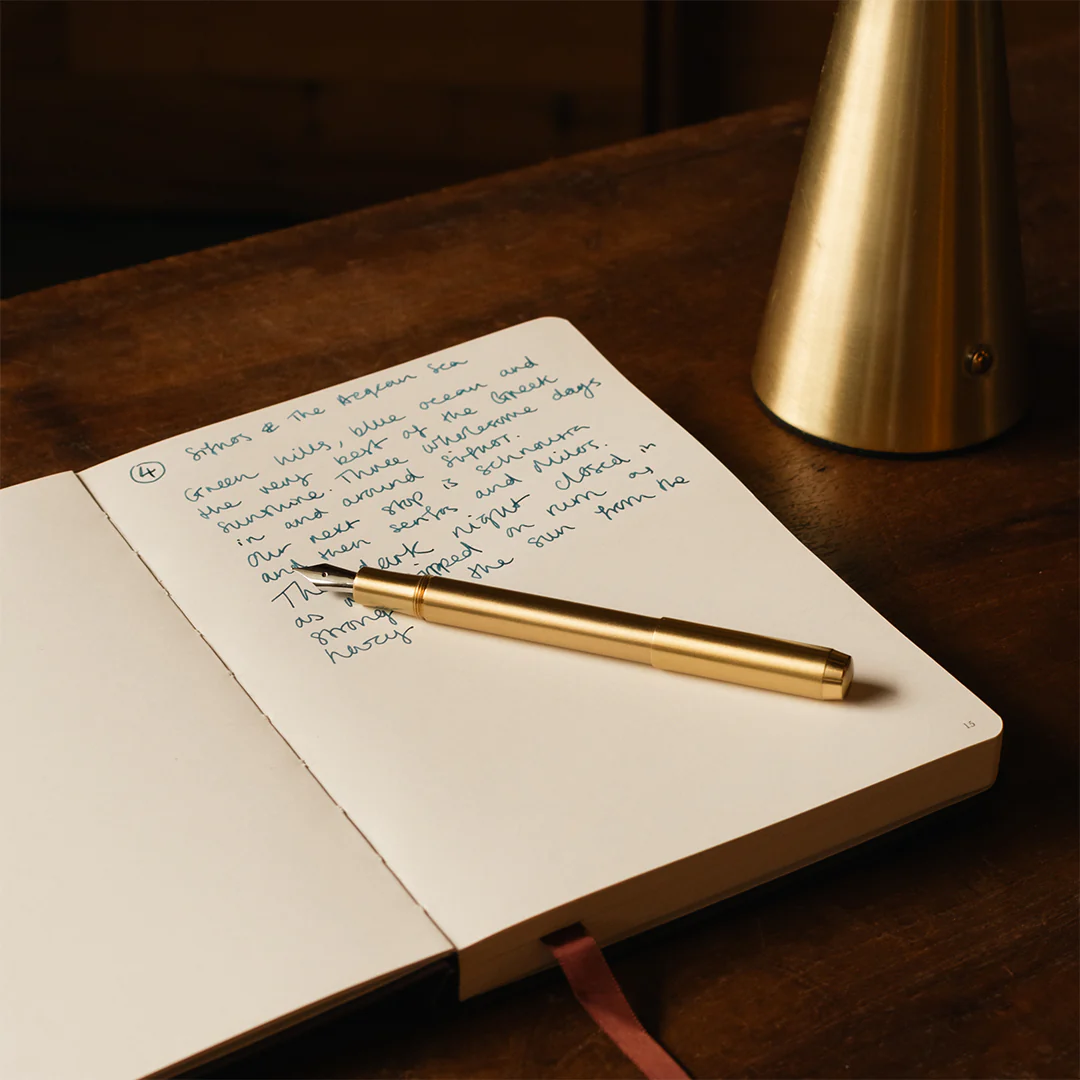 ④ Sifnos & The Aegean Sea
Green hills, blue ocean and
the very best of the Greek
sunshine. Three wholesome days
in and around Sifnos.
Our next stop is Schnoussa
and then Serifos and Milos.
The dark night closed in
as on rum as
strong the sun from the
navy
15